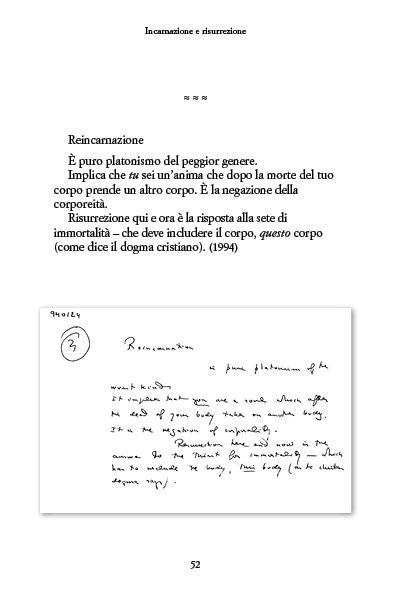 Incarnazione e risurrezione
≈ ≈ ≈
Reincarnazione
È puro platonismo del peggior genere.
Implica che tu sei un'anima che dopo la morte del tuo
corpo prende un altro corpo. È la negazione della
corporeità.
Risurrezione qui e ora è la risposta alla sete di
immortalità – che deve includere il corpo, questo corpo
(come dice il dogma cristiano). (1994)
940124
3
Reincarnation
is pure platonism of the
worst kind.
It implies that you are a soul which after
the dead of your body takes on another body.
It is the negation of corporality.
Resurrection here and now is the
answer to the thirst for immortality – which
has to include the body, this body (as the christian
dogma says).
52